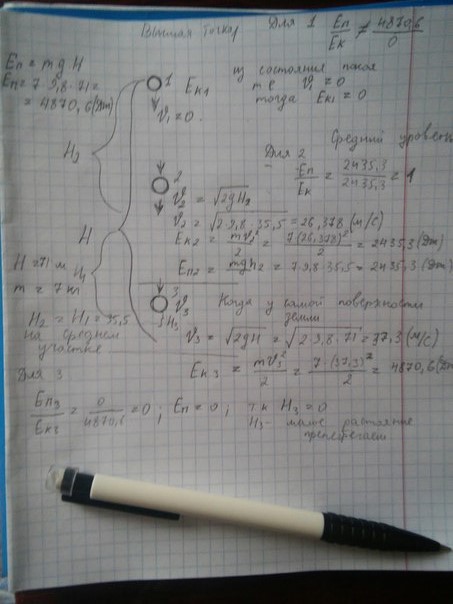 Высшая точка Для 1 Eп/Eк ≠ 4870,6/0
Eп = mgH
Eп = 7·9,8·71 =
= 4870,6 (Дж)
1 Eк1
V1 = 0
из состояния покоя
т е V1 = 0
тогда Eк1 = 0
H2
Средний уровень
Для 2
Eп/Eк = 2435,3/2435,3 = 1
2
V2 = √2gH2
V2 = √2·9,8·35,5 = 26,378 (м/с)
Eк2 = mV²/2 = 7(26,378)²/2 = 2435,3 (Дж)
Eп2 = mgh2 = 7·9,8·35,5 = 2435,3 (Дж)
H
H = 71 м
m = 7 кг
H1
H2 = H1 = 35,5
на среднем
участке
3
V3
H3
Когда у самой поверхности
земли
V3 = √2gH = √2·9,8·71 = 37,3 (м/с)
Eк3 = mV3²/2 = 7·(37,3)²/2 = 4870,6 (Дж)
Для 3
Eп3/Eк3 = 0/4870,6 = 0 ; Eп = 0 ; т к H3 = 0
H3 - малое растояние